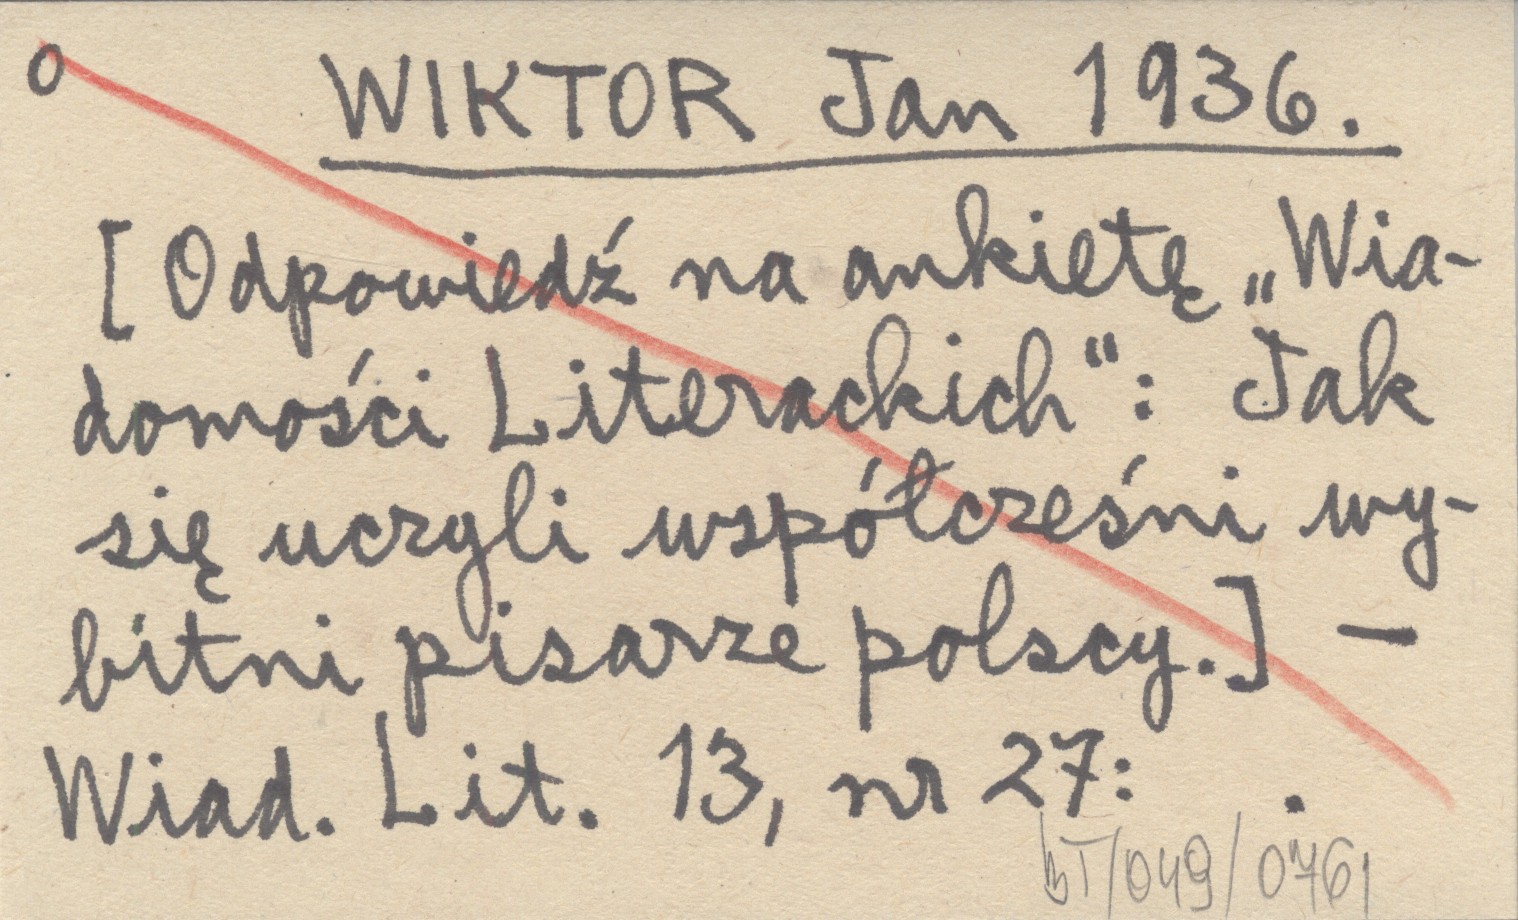 o WIKTOR Jan 1936.
[Odpowiedź na ankietę „Wia-
domości Literackich“: Jak
się uczyli współcześni wy-
bitni pisarze polscy.] —
Wiad. Lit. 13, nr 27: .
BT/049/076,